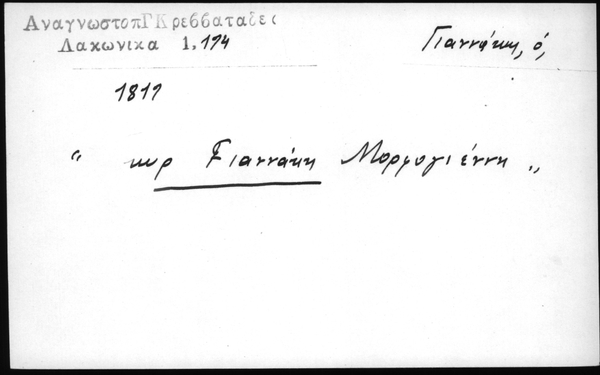 ΑναγνωστοπΓΚρεββαταδες
Λακωνικα 1,174
Γιαννάκη, ὁ,
1811
" κυρ Γιαννάκη Μορμογιέννη "